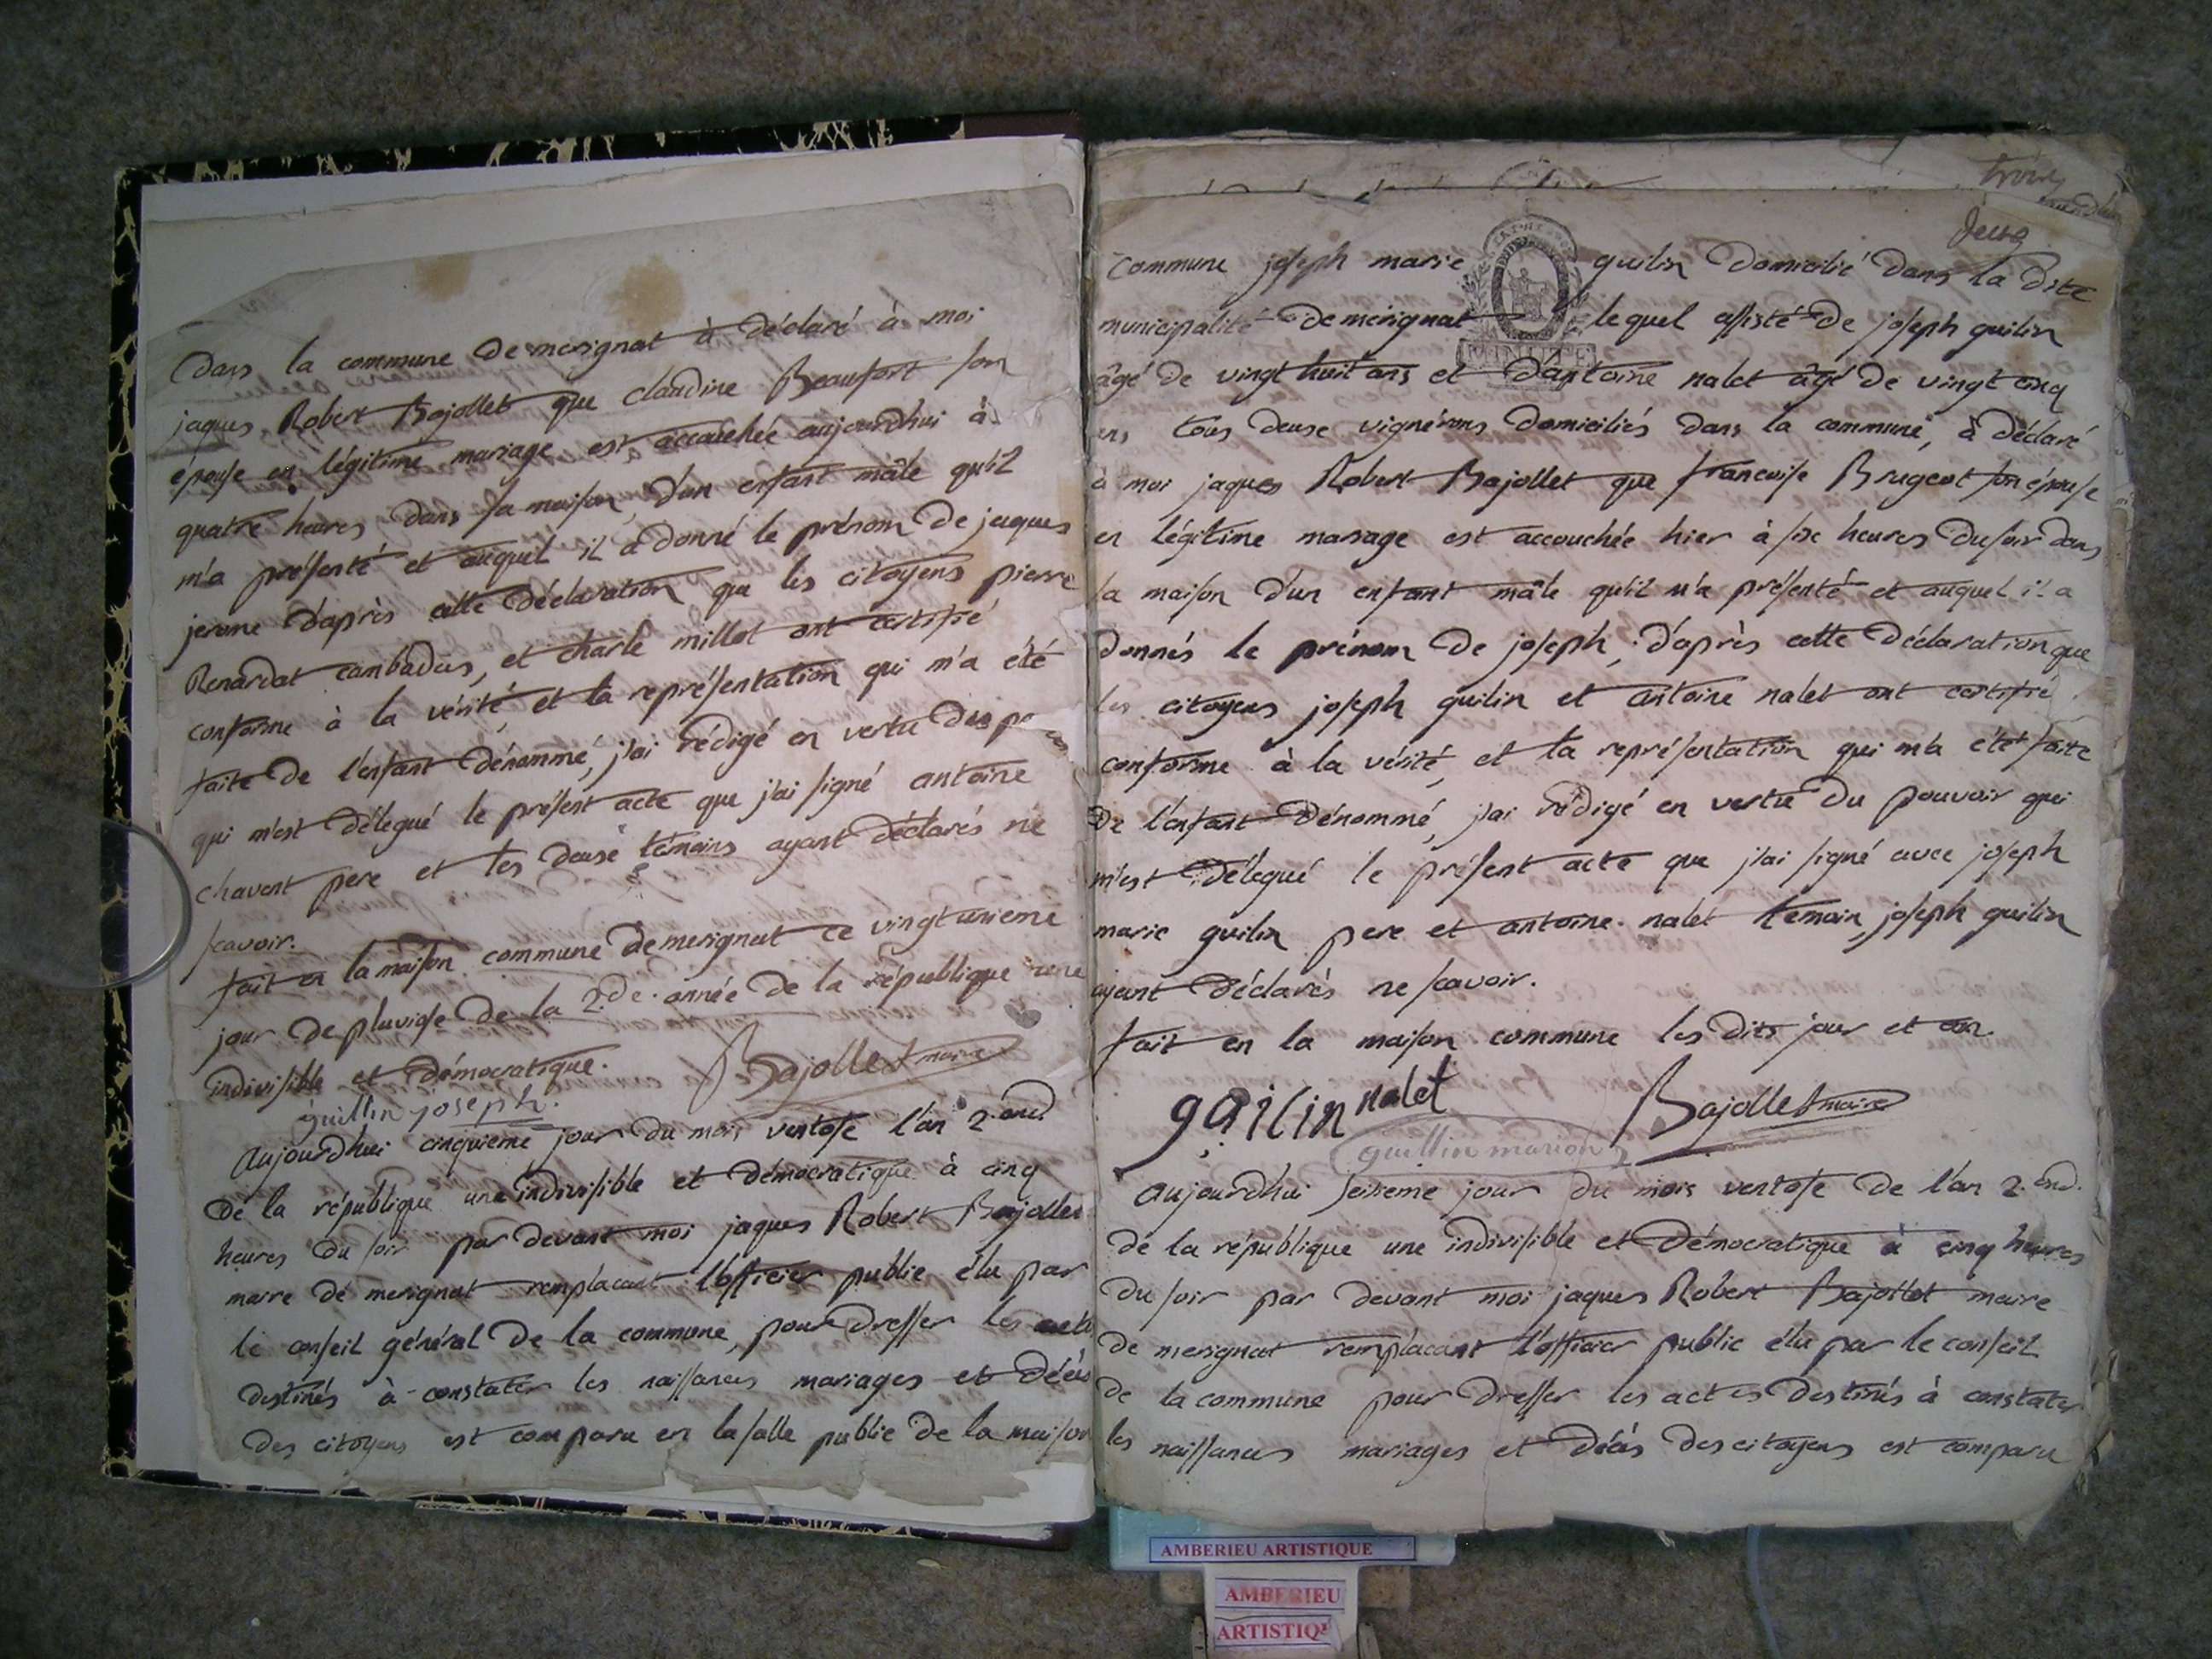 Dans la commune De merignat à Déclaré à moi
jaques Robert Bajollet que claudine Beaufort son
épouse en légitime mariage est accouchée aujourdhui à
quatre heures dans sa maison, d'un enfant mâle qu'il
m'a présenté et auquel il a donné le prénom De jacques
jerome d'après cette Déclaration que les citoyens pierre
Renardat cambadus, et charle millet ont certifié
conforme à la vérité, et la représentation qui m'a été
faite De l'enfant Dénommé, j'ai rédigé en vertu Des
qui m'est délegué le présent acte que j'ai signé antoine
chavent pere et les deuse témoins ayant déclarés ne
scavoir.
fait en la maison commune De merignat ce vingt unieme
jour De pluviose De la 2.de année De la république une
indivisible et démocratique. Bajollet maire
guillin joseph.
Aujourdhui cinquieme jour du mois ventose l'an 2.ond
De la république une indivisible et démocratique à cinq
heures du soir par devant moi jaques Robert Bajollet
maire de merignat remplacant l'officier public élu par
le conseil général De la commune, pour Dresser les actes
destinés à constater les naissances mariages et Décès
Des citoyens est comparu en la salle public De la maison
trois
Deuse
Commune joseph marie guilin Domicilié Dans la Dite
municipalité De merignat lequel assisté De joseph guilin
MINUTE
âgé De vingt huit ans et D'antoine nalet âgé De vingt cinq
ans tous deuse vignérons Domiciliés Dans la commune, à Déclaré
à moi jaques Robert Bajollet que francoise Brugeot son épouse
en légitime mariage est accouchée hier à sise heures Du soir dans
sa maison D'un enfant mâle qu'il m'a présenté et auquel il a
donnés le prénom De joseph, d'après cette Déclaration que
les citoyens joseph guilin et antoine nalet ont certifié
conforme à la vérité, et la représentation qui m'a étét faite
De l'enfant Dénommé, j'ai rédigé en vertu Du pouvoir qui
m'est Délegué le présent acte que j'ai signé avec joseph
marie guilin pere et antoine nalet temoin, joseph guilin
ayant Déclarés ne scavoir.
fait en la maison commune les dits jour et an.
gailin nalet Bajollet maire
guillin marion
Aujourdhui seisieme jour Du mois ventose De l'an 2.ond.
De la république une indivisible et Démocratique à cinq heures
Du soir par devant moi jaques Robert Bajollet maire
De merignat remplacant l'officier public élu par le conseil
De la commune pour Dresser les actes Destinés à constater
les naissances mariages et Décès Des citoyens est comparu
AMBERIEU ARTISTIQUE
AMBERIEU
ARTISTIQ